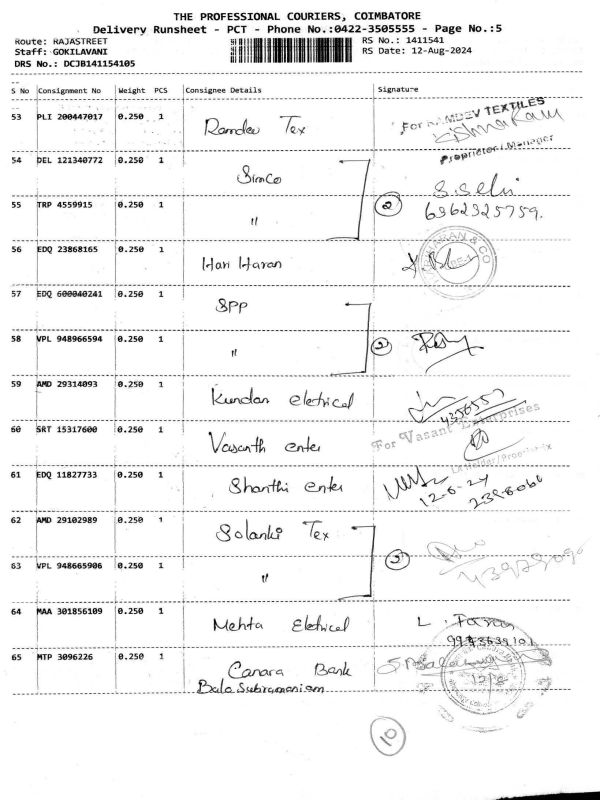 THE PROFESSIONAL COURIERS, COIMBATORE
Delivery Runsheet - PCT - Phone No.:0422-3505555 - Page No.:5
Route: RAJASTREET RS No.: 1411541
Staff: GOKILAVANI RS Date: 12-Aug-2024
DRS No.: DCJB141154105
S No Consignment No Weight PCS Consignee Details Signature
53 PLI 200447017 0.250 1 Ramdev Tex For RAMDEV TEXTILES
Proprietor / Manager
54 DEL 121340772 0.250 1 Simco S. Selvi
55 TRP 4559915 0.250 1 " 2 6362325759.
56 EDQ 23868165 0.250 1 Hari Haran
57 EDQ 600040241 0.250 1 SPP
58 VPL 948966594 0.250 1 " 2
59 AMD 29314093 0.250 1 Kundan eletrical
60 SRT 15317600 0.250 1 Vasanth enter For Vasant Enterprises
61 EDQ 11827733 0.250 1 Shanthi enter
62 AMD 29102989 0.250 1 Solanki Tex
63 VPL 948665906 0.250 1 "
64 MAA 301856109 0.250 1 Mehta Eletrical
65 MTP 3096226 0.250 1 Canara Bank
Bala Subramaniam
10